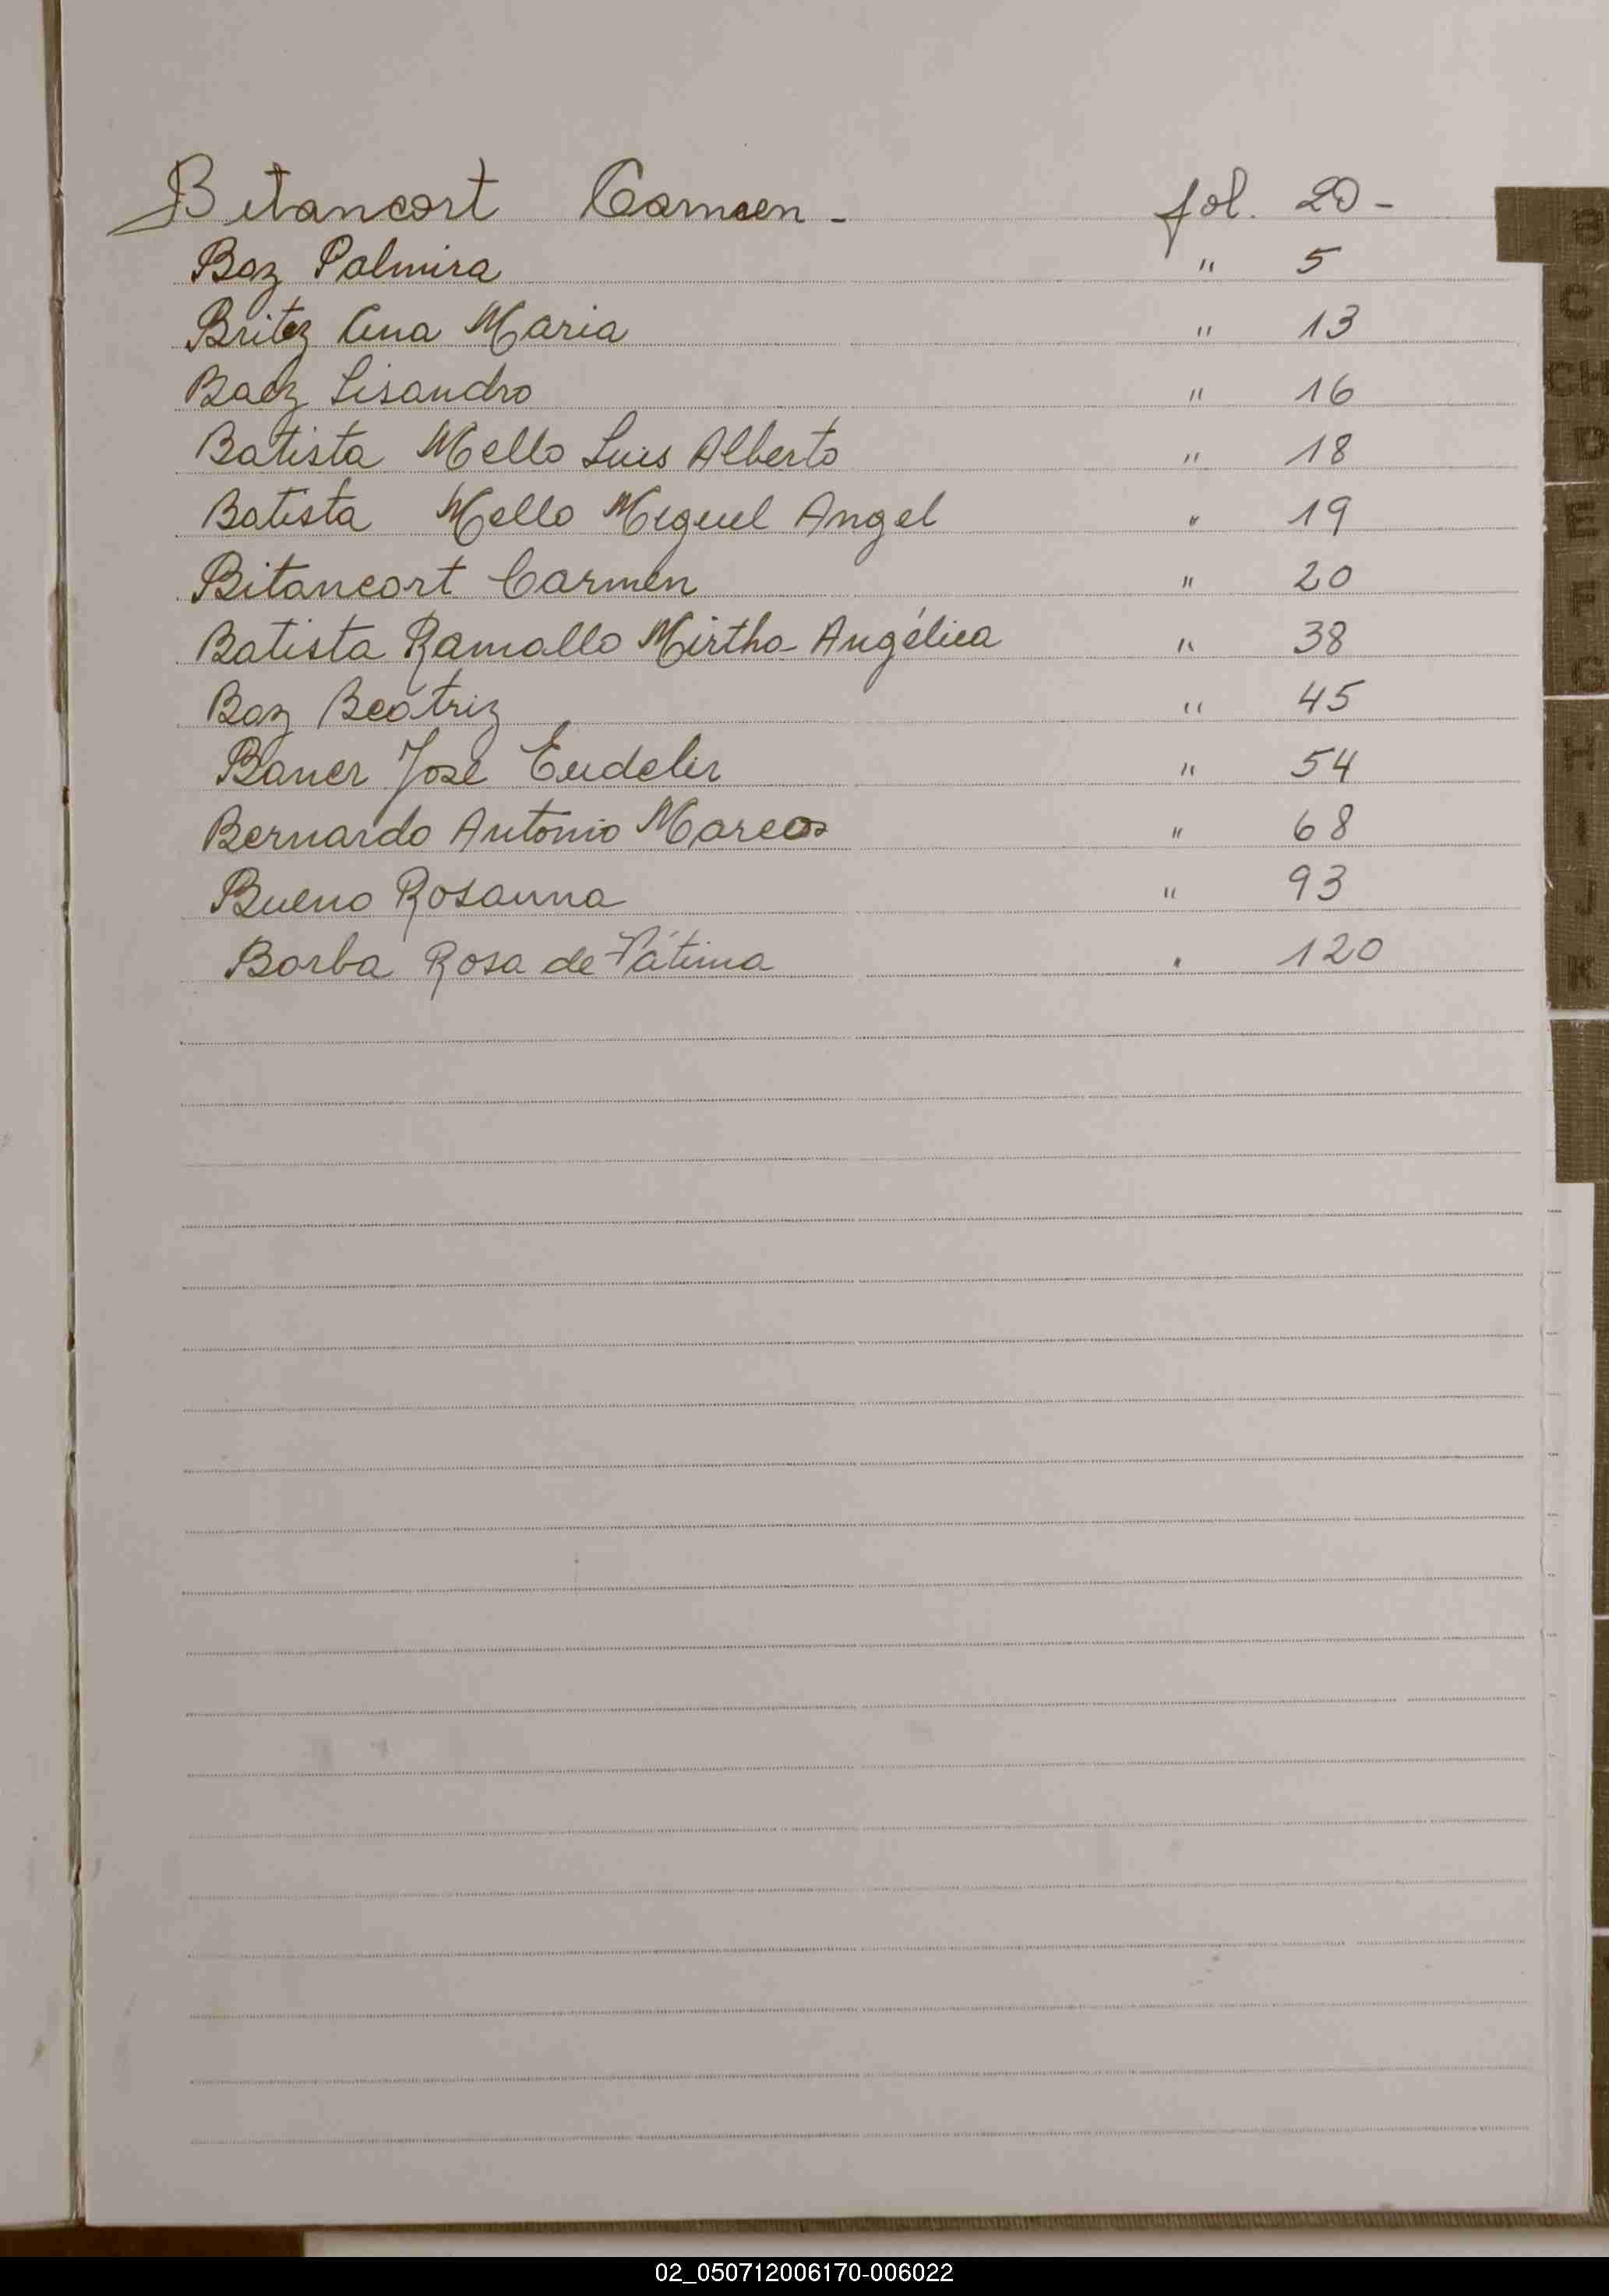 Bitancort Carmen - fol. 20 -
Baz Palmira " 5
Britez Ana Maria " 13
Baez Lisandro " 16
Batista Mello Luis Alberto " 18
Batista Mello Miguel Angel " 19
Bitancort Carmen " 20
Batista Ramallo Mirtha Angélica " 38
Baz Beatriz " 45
José " 54
Bernardo Antonio Marcos " 68
Bueno Rosanna " 93
Borba Rosa de Fátima " 120
B
C
CH
D
E
F
G
H
I
J
K
02_050712006170-006022